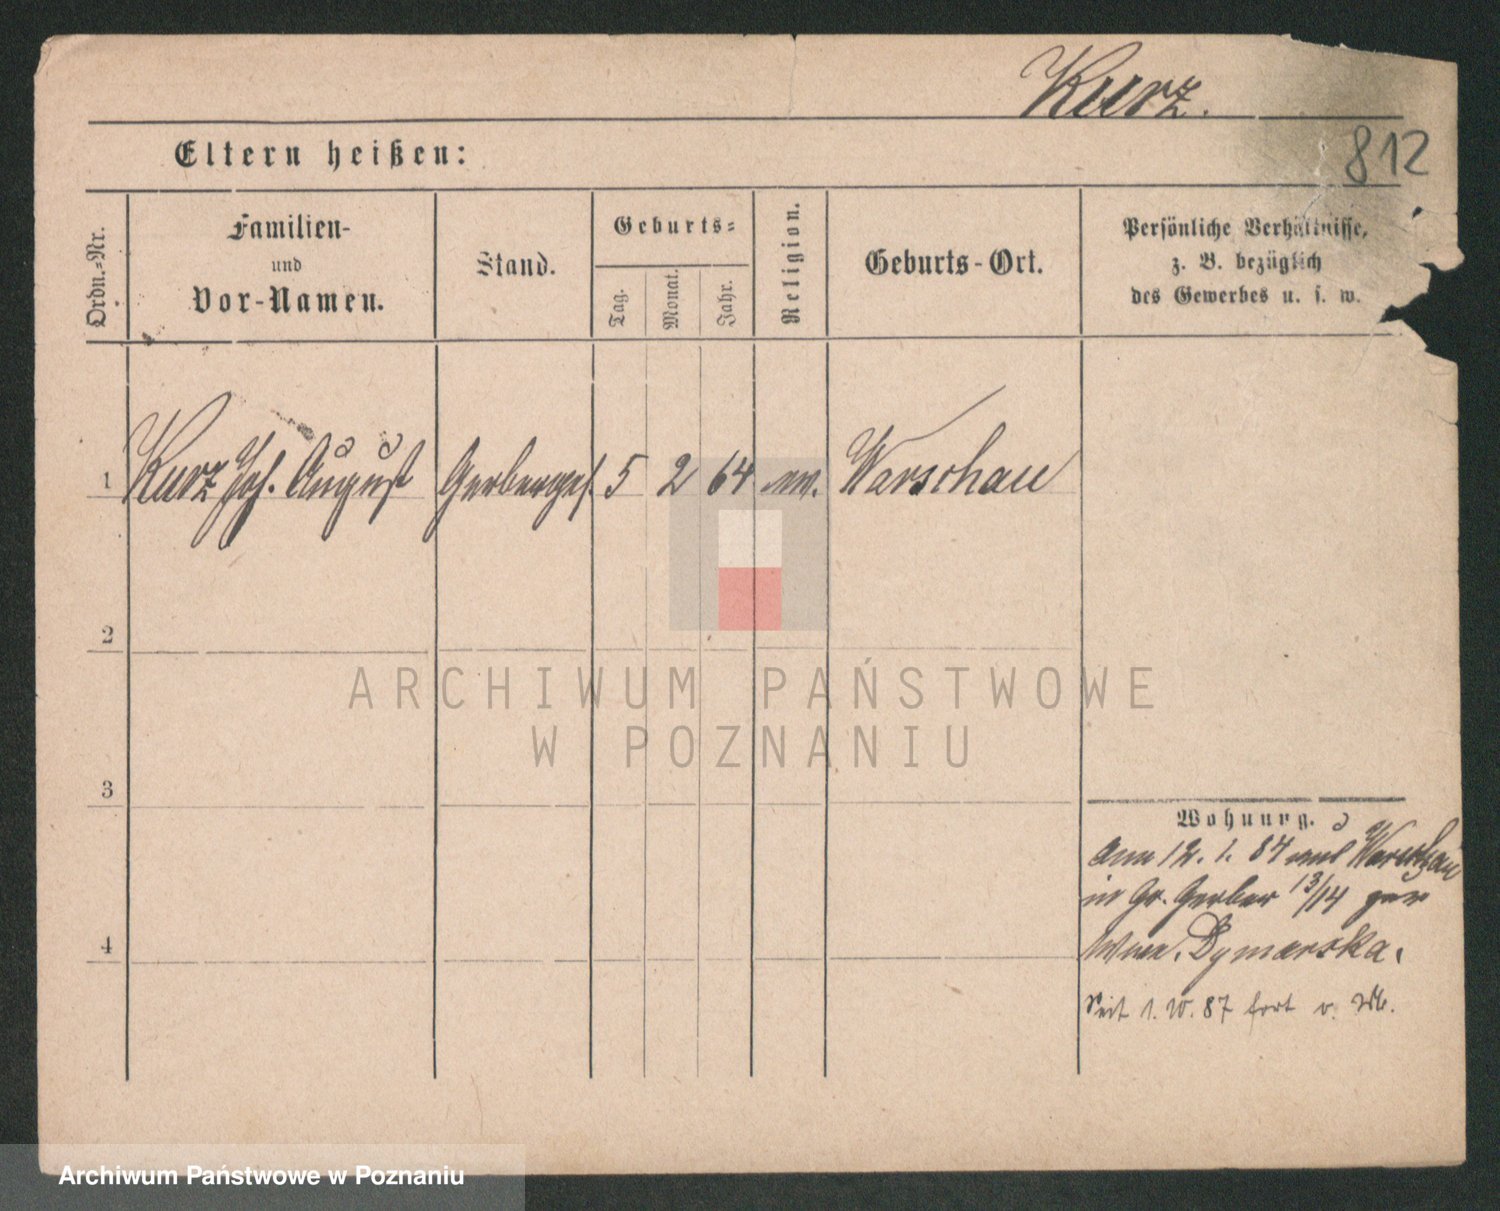 Kurz.
812
Eltern heißen:
Ordn.-Nr.
Familien-
und
Vor-Namen.
Stand.
Geburts-
Tag.
Monat.
Jahr.
Religion.
Geburts-Ort.
Persönliche Verhältnisse,
z. B. bezüglich
des Gewerbes u. s. w.
1 Kurz Joh. August Gerberges. 5 2 64 ev. Warschau
2
3
4
Wohnung.
Am 12. 1. 87 aus Warschau
in Gr. Gerber 13/14 zur
Wwe. Dymarska.
Seit 1. 10. 87 fort v.
ARCHIWUM PAŃSTWOWE
W POZNANIU
Archiwum Państwowe w Poznaniu